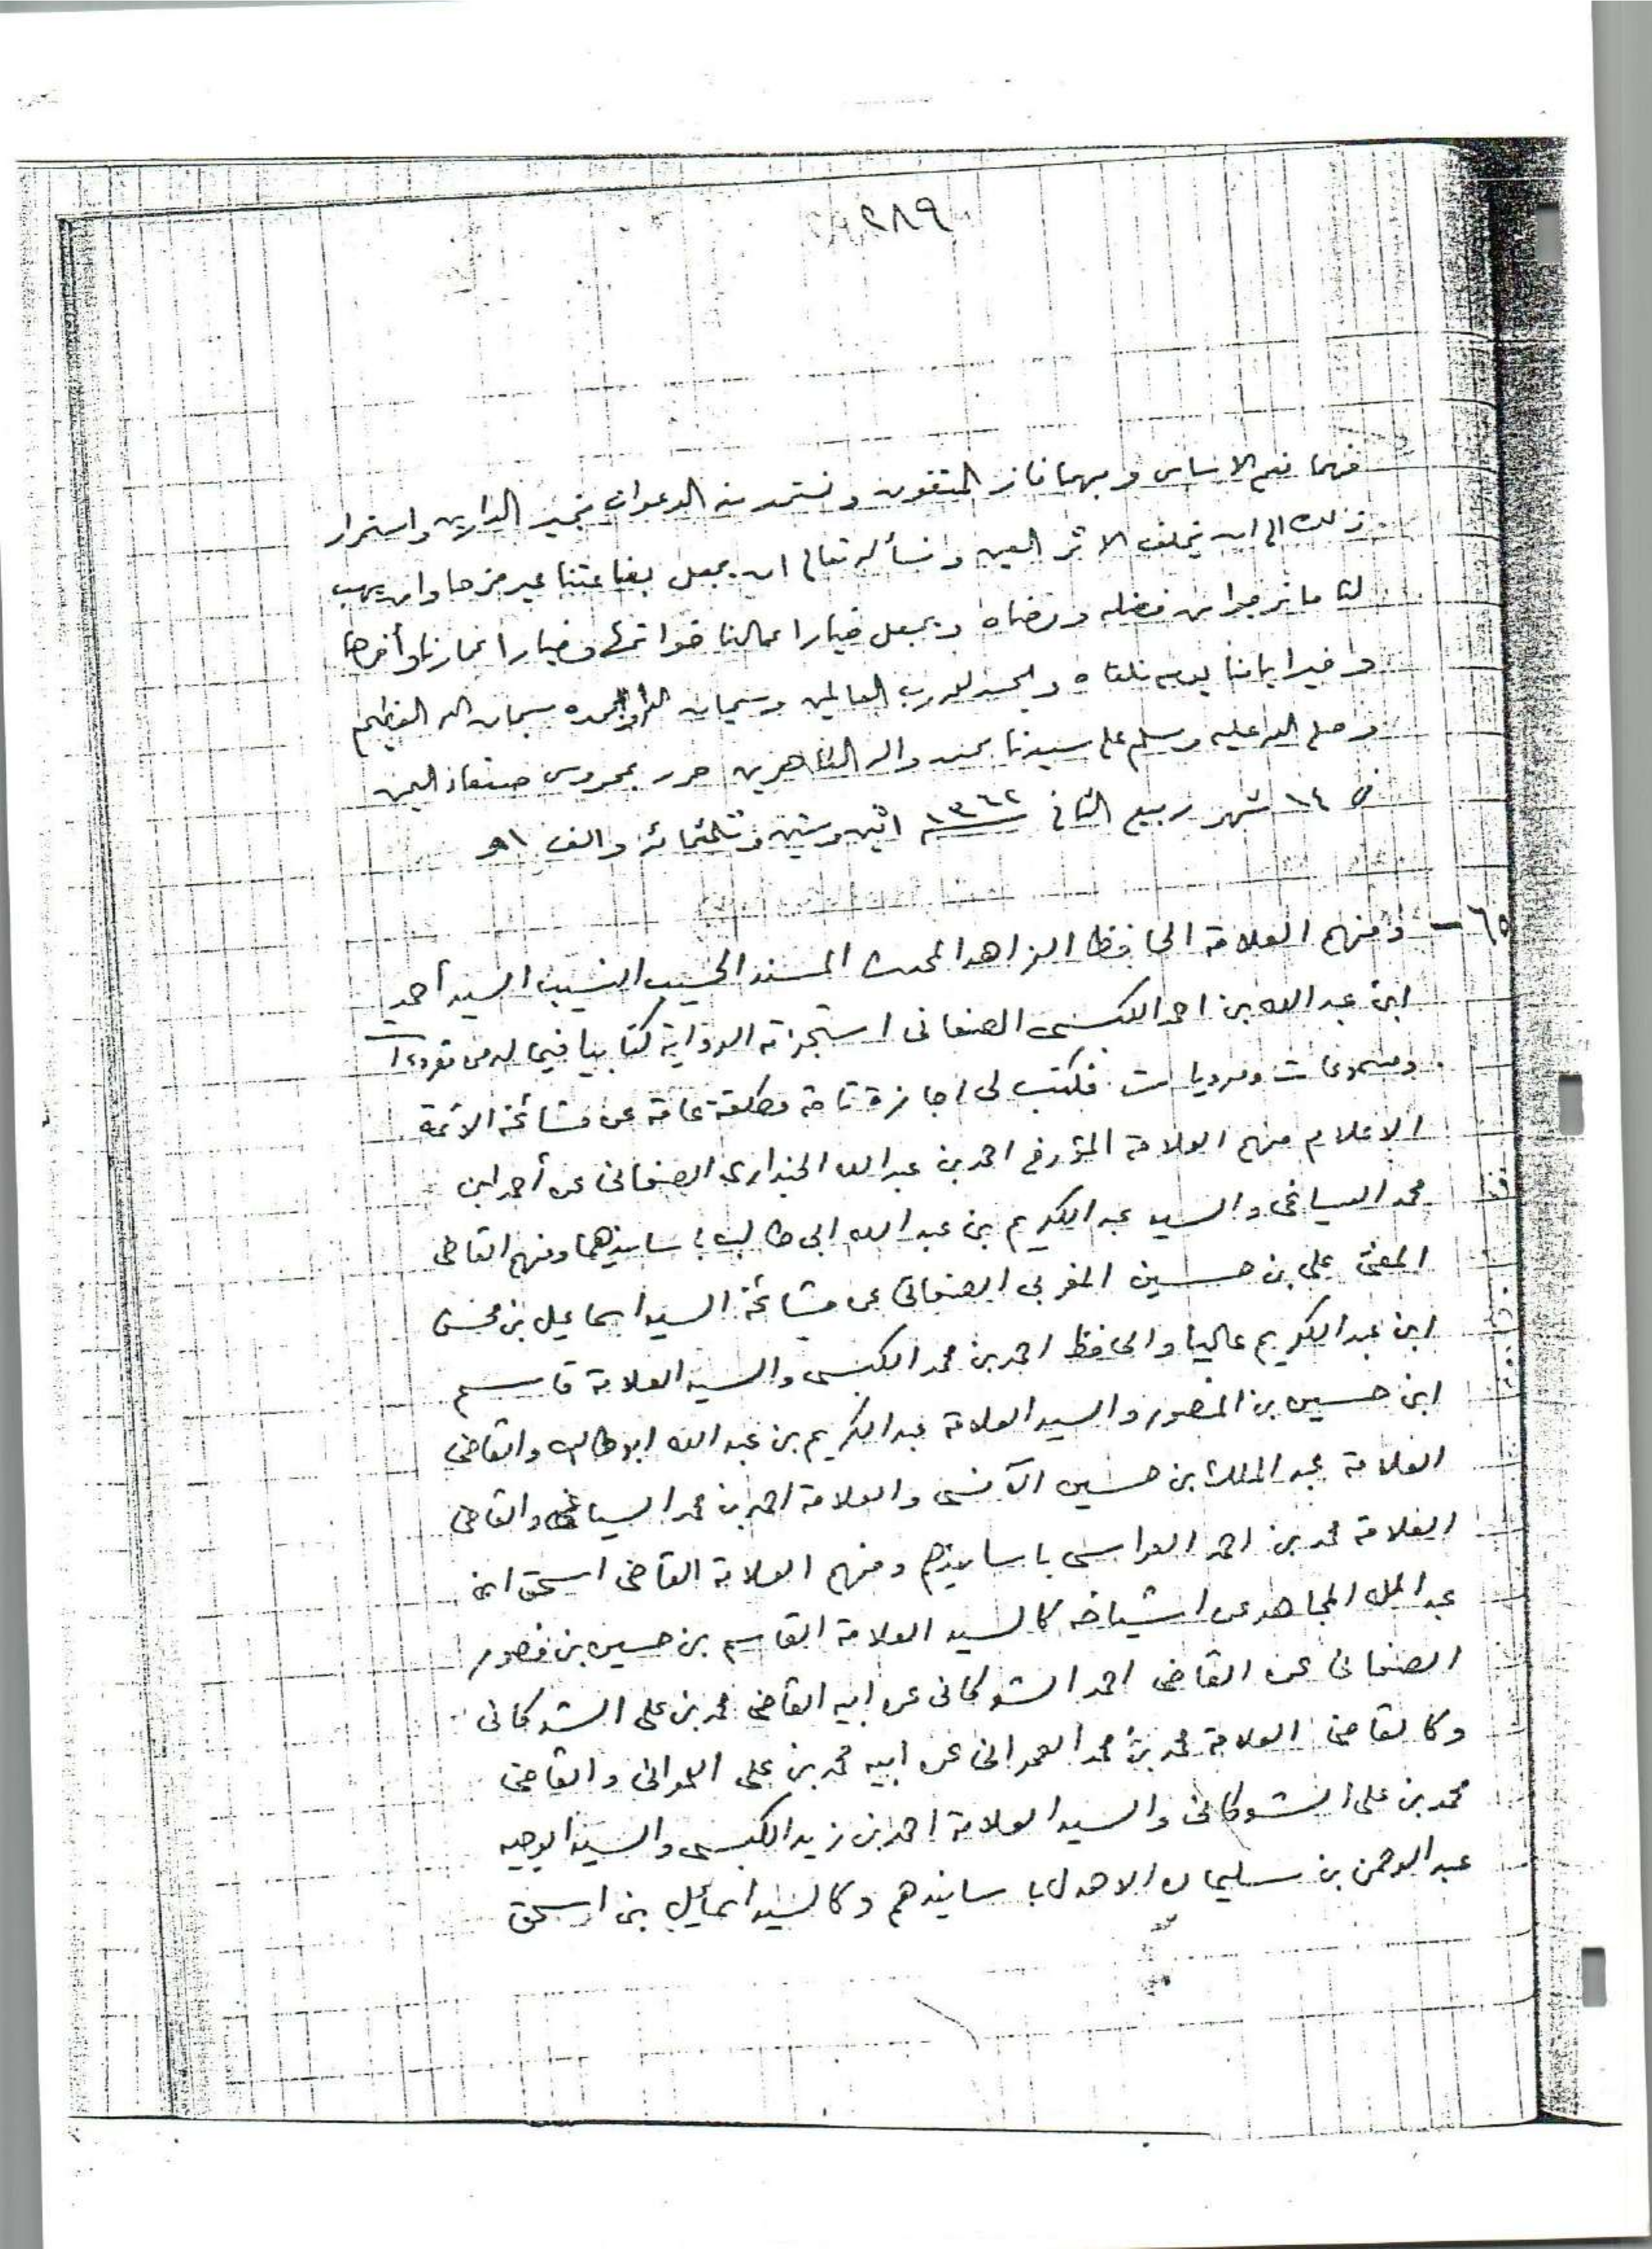 ٢٨٩
فهما نعم الاساس وبهما فاز المتقون ونستمد منه الدعوات بخير الدارين واستمرار
ذلك الى ان يخلف الاثر العين ونسأله تعالى ان يجعل بضاعتنا غير مزجاة وان يهب
لنا ما نرجوا من فضله ورضاه ويجعل خيار اعمالنا خواتمها وخيار اعمارنا وأخرها
وخير ايامنا يوم نلقاه والحمد لله رب العالمين وسبحان الله وبحمده سبحان الله العظيم
وصلى الله عليه وسلم على سيدنا محمد واله الطاهرين حرر بمحروس صنعاء اليمن
في ١٤ شهر ربيع الثاني ١٣٦٢ اثنين وستين وثلثمائة والف اه
٦٥ - ومنهم العلامة الحافظ الزاهد المحدث المسند الحسيب النسيب السيد أحمد
ابن عبد الله بن احمد الكبسى الصنعانى استجزته الرواية كتابيا فيما له من مقروءات
ومسموعات ومرويات فكتب لى اجازة تامة مطلقة عامة عن مشائخه الأئمة
الاعلام منهم العلامة المؤرخ احمد بن عبد الله الجنداري الصنعانى عن أحمد ابن
محمد السياغى والسيد عبد الكريم بن عبد الله ابى طالب باسانيدهما ومنهم القاضى
المفتى على بن حسين المغربى الصنعانى عن مشائخه السيد اسماعيل بن محسن
ابن عبد الكريم عاليا والحافظ احمد بن محمد الكبسى والسيد العلامة قاسم
ابن حسين بن المنصور والسيد العلامة عبد الكريم بن عبد الله ابو طالب والقاضى
العلامة عبد الملك بن حسين الآنسى والعلامة احمد بن محمد السياغى والقاضى
العلامة محمد بن احمد العراسى باسانيدهم ومنهم العلامة القاضى اسحق ابن
عبد الله المجاهد عن اشياخه كالسيد العلامة القاسم بن حسين بن منصور
الصنعانى عن القاضى احمد الشوكانى عن ابيه القاضى محمد بن على الشوكانى
وكالقاضى العلامة محمد بن محمد العمرانى عن ابيه محمد بن على العمرانى والقاضى
محمد بن على الشوكانى والسيد العلامة احمد بن زيد الكبسى والسيد الوجيه
عبد الرحمن بن سليمان الاهدل باسانيدهم وكالسيد اسماعيل بن اسحق